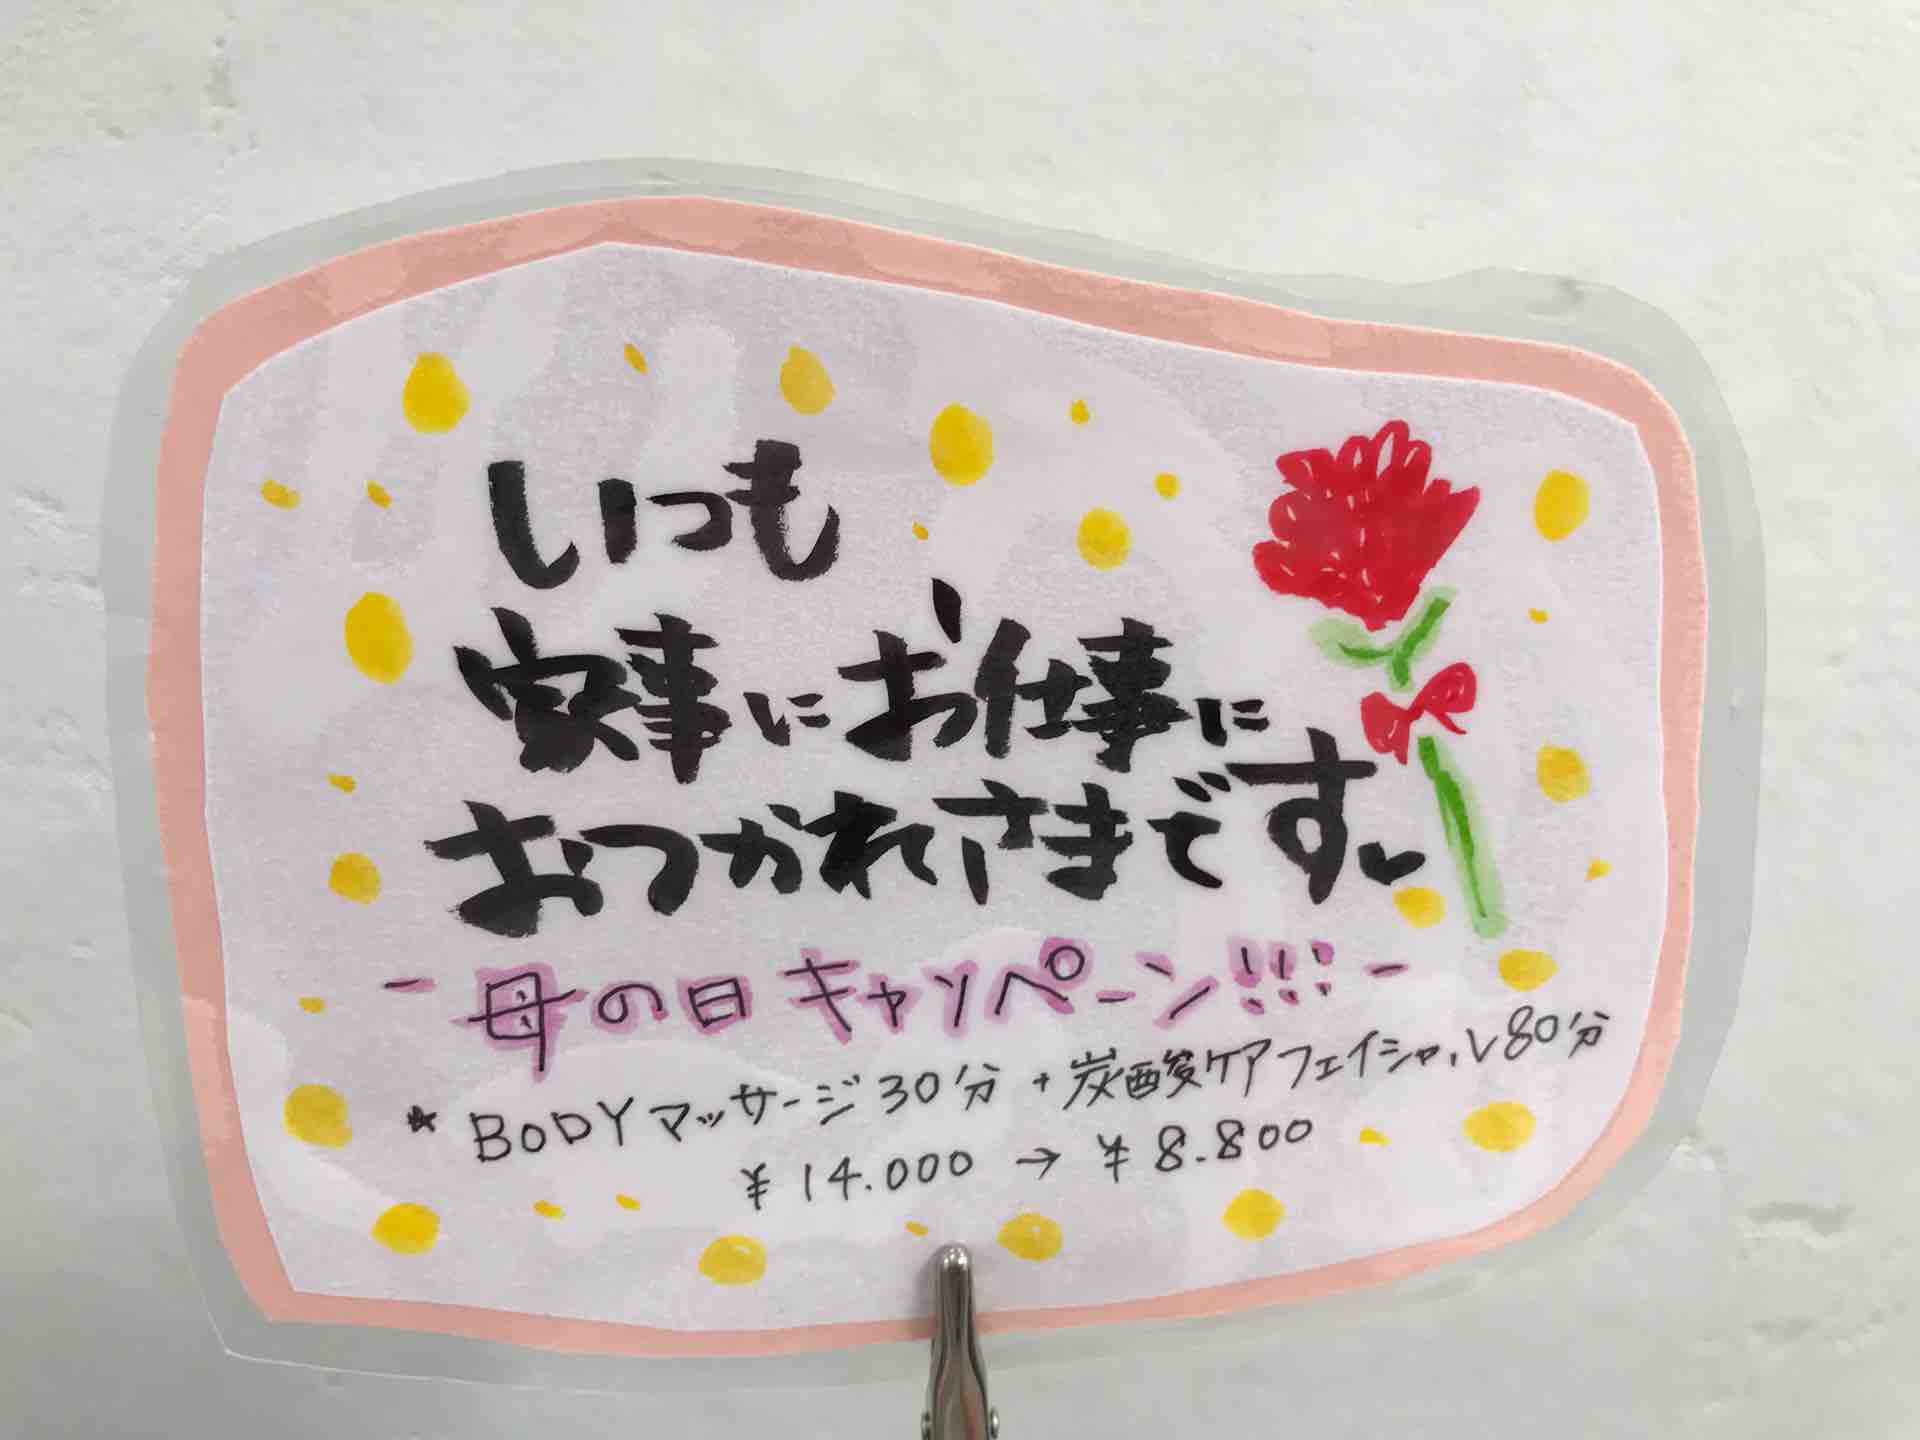 いつも
家事にお仕事に
おつかれさまです♥
- 母の日 キャンペーン!!! -
* BODYマッサージ30分 + 炭酸ケアフェイシャル80分
¥14.000 → ¥8.800